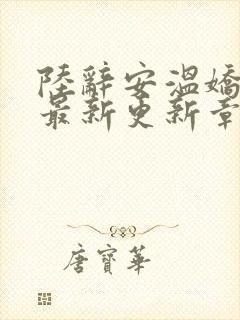 陸辭安溫嬌
最新更新章
唐寶華